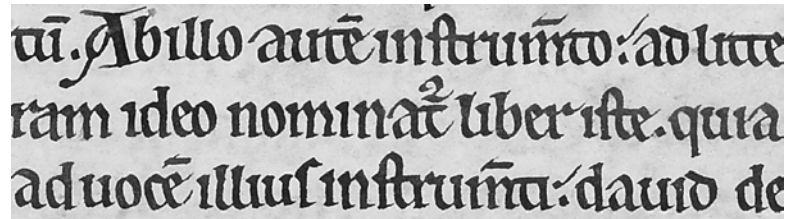 tū. Ab illo autē inſtrum̄to: ad litte
ram ideo nominat᷑ liber iſte. quia
ad uocē illiuſ inſtrum̄ti: dauid de